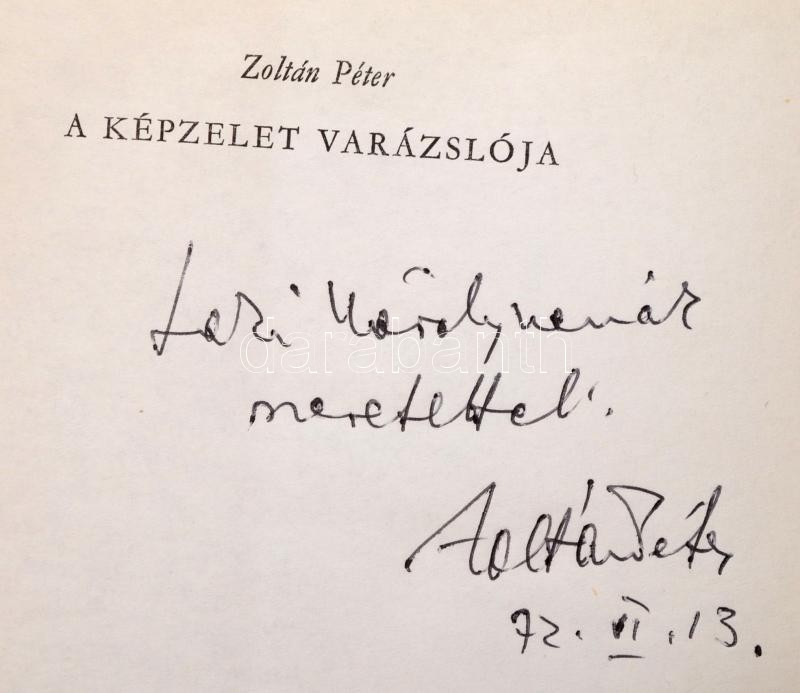 Zoltán Péter
A KÉPZELET VARÁZSLÓJA
Károlynénak
darabanth
szeretettel:
Zoltán Péter
72. VI. 13.